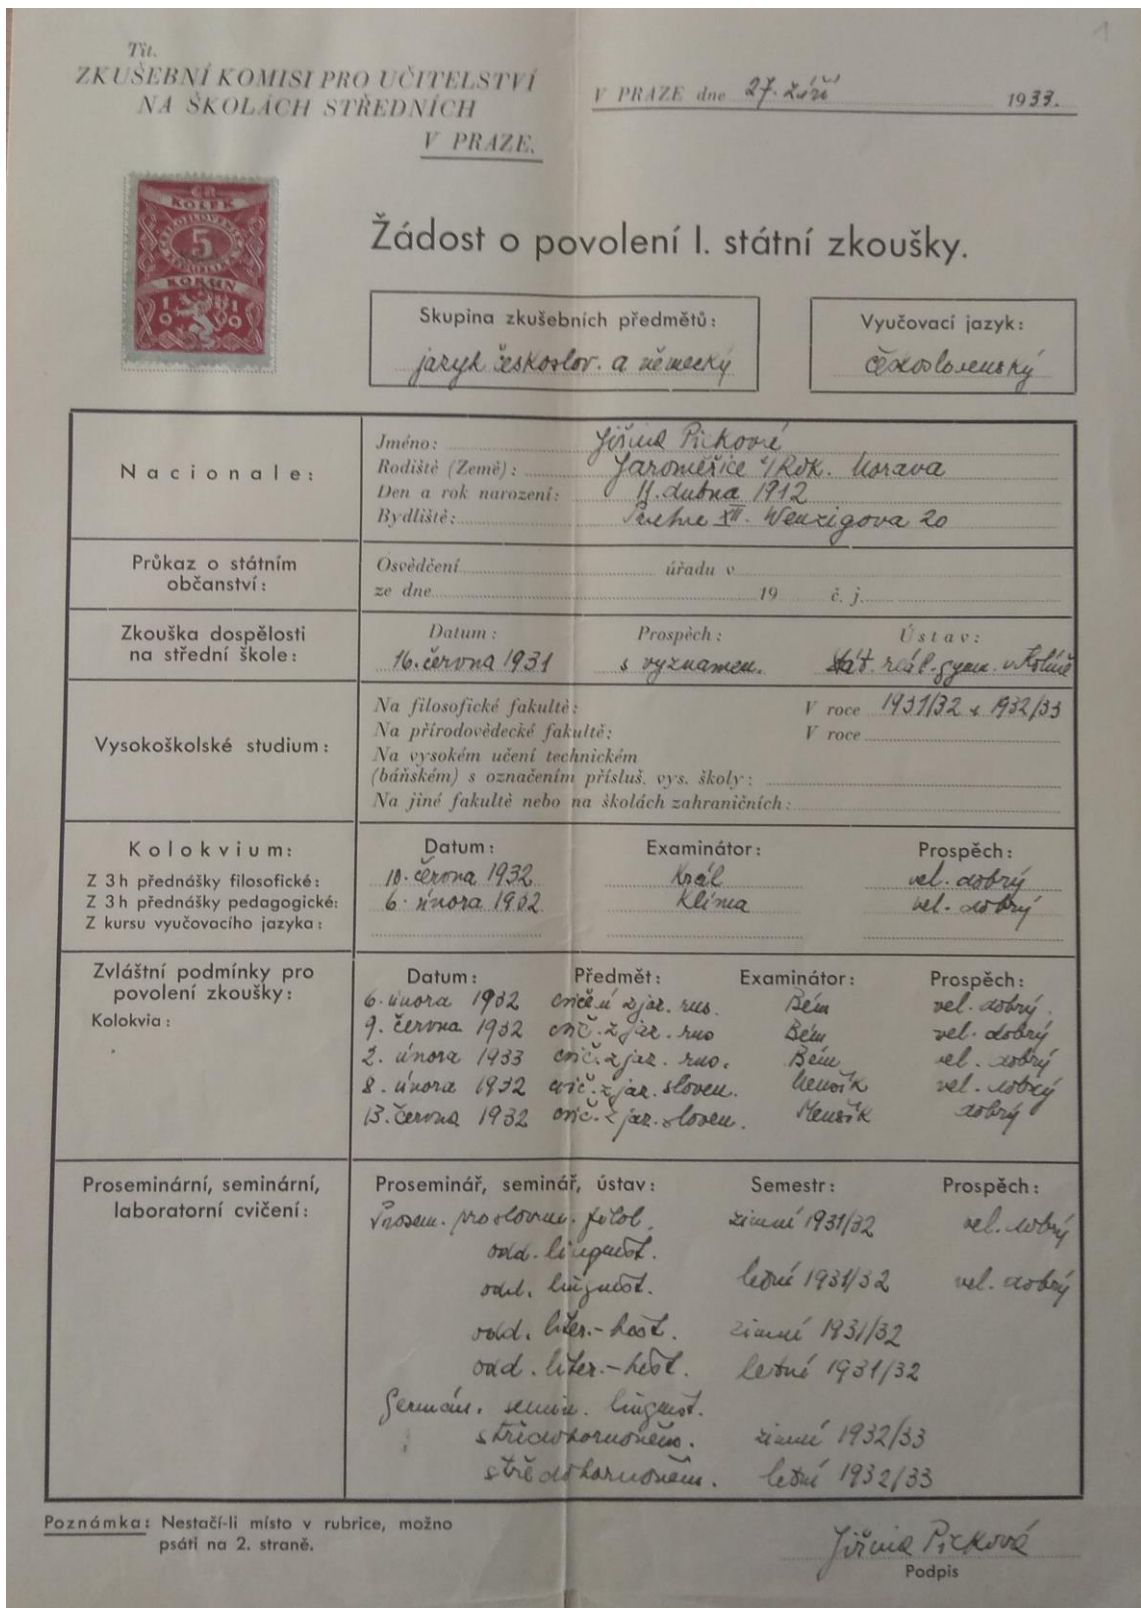 1
Tit.
ZKUŠEBNÍ KOMISI PRO UČITELSTVÍ
NA ŠKOLÁCH STŘEDNÍCH
V PRAZE.
V PRAZE dne 27. září 1933.
KOLEK
5
KORUN
1919
Žádost o povolení I. státní zkoušky.
Skupina zkušebních předmětů:
jazyk českoslov. a německý
Vyučovací jazyk:
československý
Nacionale:
Jméno: Jiřina Picková
Rodiště (Země): Jaroměřice n/Rok. Morava
Den a rok narození: 11. dubna 1912
Bydliště: XII. Wenzigova 20
Průkaz o státním občanství:
Osvědčení úřadu v
ze dne 19 č. j.
Zkouška dospělosti na střední škole:
Datum: Prospěch: Ústav:
16. června 1931 s vyznamen. stát. reál. gymn. v Kolíně
Vysokoškolské studium:
Na filosofické fakultě: V roce 1931/32 a 1932/33
Na přírodovědecké fakultě: V roce
Na vysokém učení technickém
(báňském) s označením přísluš. vys. školy:
Na jiné fakultě nebo na školách zahraničních:
Kolokvium: Datum: Examinátor: Prospěch:
Z 3 h přednášky filosofické: 10. června 1932 Král vel. dobrý
Z 3 h přednášky pedagogické: 6. února 1932 Klíma vel. dobrý
Z kursu vyučovacího jazyka:
Zvláštní podmínky pro povolení zkoušky:
Kolokvia:
Datum: Předmět: Examinátor: Prospěch:
6. února 1932 cvičení z jaz. rus. Bém vel. dobrý.
9. června 1932 cvič. z jaz. rus Bém vel. dobrý
2. února 1933 cvič. z jaz. rus. Bém vel. dobrý
8. února 1932 cvič. z jaz. sloven. Menšík vel. dobrý
13. června 1932 cvič. z jaz. sloven. Menšík dobrý
Proseminární, seminární,
laboratorní cvičení:
Proseminář, seminář, ústav: Semestr: Prospěch:
Prosem. pro slovan. filol. zimní 1931/32 vel. dobrý
odd. lingvist.
odd. lingvist. letní 1931/32 vel. dobrý
odd. liter.-hist. zimní 1931/32
odd. liter.-hist. letní 1931/32
Germán. semin. lingvist.
středohornoněm. zimní 1932/33
středohornoněm. letní 1932/33
Poznámka: Nestačí-li místo v rubrice, možno
psáti na 2. straně.
Jiřina Picková
Podpis